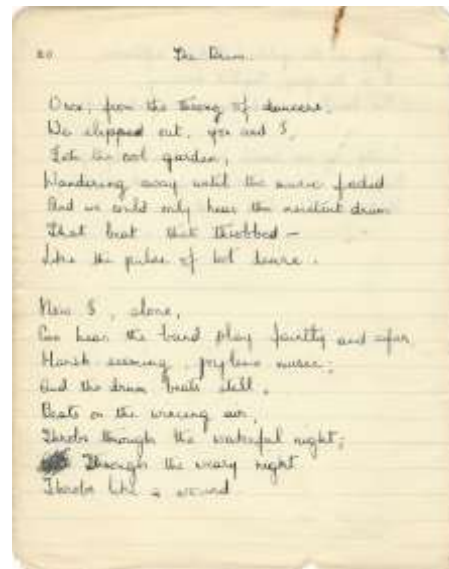 20 The Drum.
Once, from the throng of dancers,
We slipped out, you and I,
Into the cool garden,
Wandering away until the music faded
And we could only hear the insistent drum
That beat that throbbed —
Like the pulse of hot desire.
Now I, alone,
Can hear the band play faintly and afar,
Harsh seeming, joyless music;
And the drum beats still,
Beats on the air,
Throbs through the wakeful night;
Through the weary night
Throbs like a wound